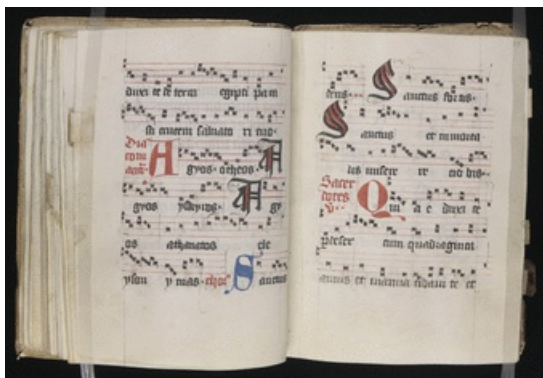 duxi te de terra egipti parasti
crucem salvatori tuo.
Agyos. otheos. A
gyos yskyros. Agy
os athanatos ele
yson ymas. Sanctus
deus. Sanctus fortis.
Sanctus et inmorta
lis miserere nobis.
Quia eduxi te
per desertum quadraginta
annis et manna cibavi te et